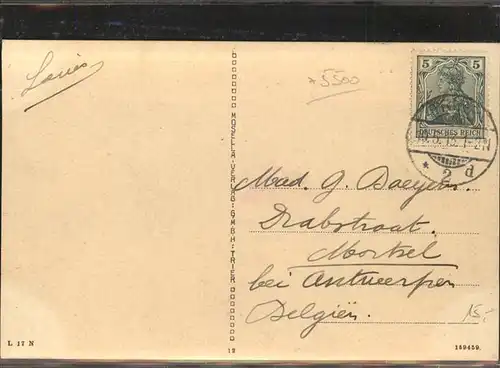 Louis
5500
5 5
DEUTSCHES REICH
2 d
MOSELLA-VERLAG: G.M.B.H: TRIER
Mad. G. Baeyens
Drabstraat.
Mortsel
bei Antwerpen
Belgiën.
15,-
L 17 N
12
169459.